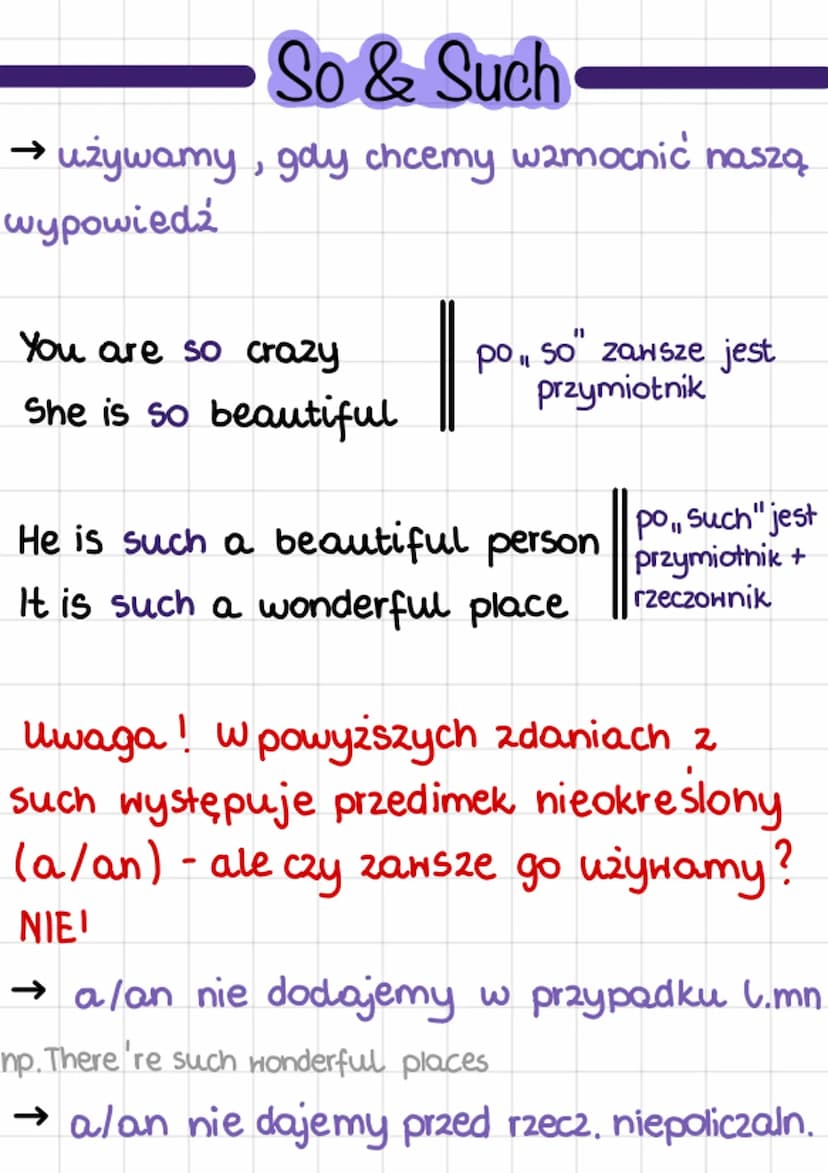 So & Such
→ używamy, gdy chcemy wzmocnić naszą
wypowiedź
You are so crazy
She is so beautiful
po „so" zawsze jest
przymiotnik
He is such a beautiful person
It is such a wonderful place
po „such" jest
przymiotnik +
rzeczownik
Uwaga! W powyższych zdaniach z
such występuje przedimek nieokreślony
(a/an) - ale czy zawsze go używamy?
NIE!
→ a/an nie dodajemy w przypadku l.mn
np. There're such wonderful places
→ a/an nie dajemy przed rzecz. niepoliczaln.